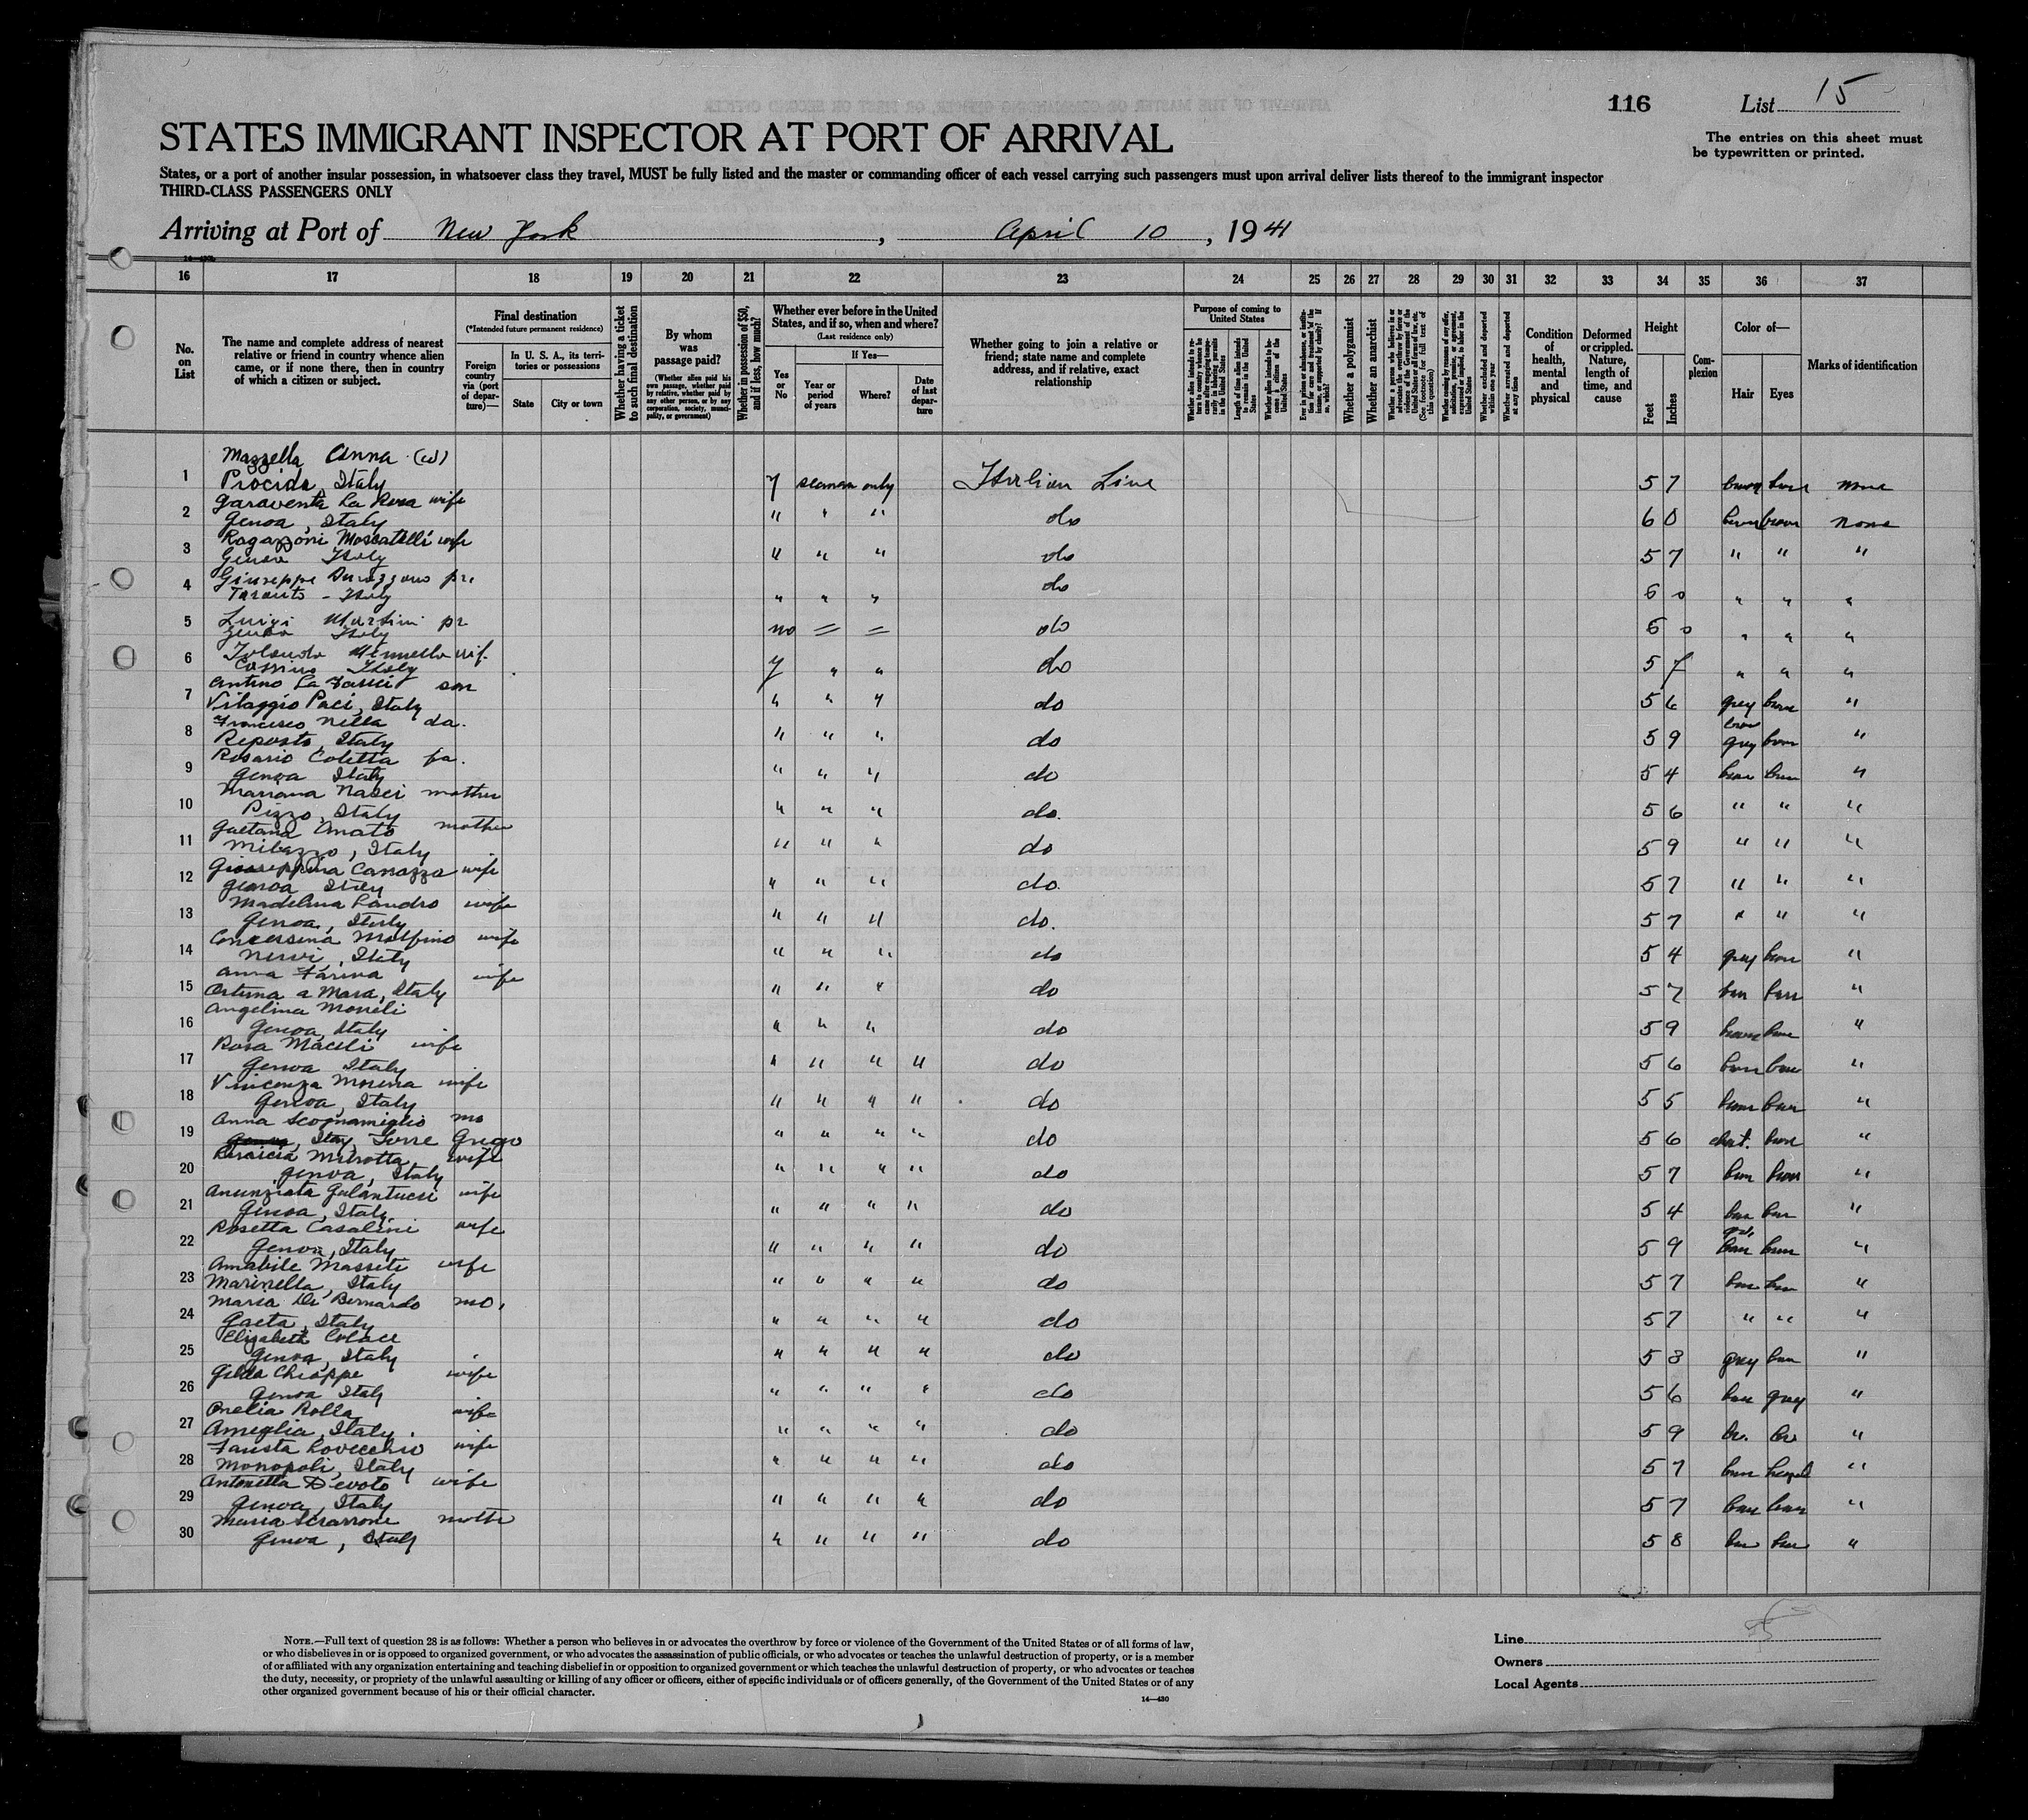 116 List 15
STATES IMMIGRANT INSPECTOR AT PORT OF ARRIVAL
The entries on this sheet must
be typewritten or printed.
States, or a port of another insular possession, in whatsoever class they travel, MUST be fully listed and the master or commanding officer of each vessel carrying such passengers must upon arrival deliver lists thereof to the immigrant inspector
THIRD-CLASS PASSENGERS ONLY
Arriving at Port of New York, April 10, 1941
16 17 18 19 20 21 22 23 24 25 26 27 28 29 30 31 32 33 34 35 36 37
No. on List
The name and complete address of nearest
relative or friend in country whence alien
came, or if none there, then in country
of which a citizen or subject.
Final destination
(*Intended future permanent residence)
Foreign country via (port of departure)—
In U. S. A., its territories or possessions
State
City or town
Whether having a ticket to such final destination
By whom was passage paid?
(Whether alien paid his own passage, whether paid by relative, whether paid by any other person, or by any corporation, society, municipality, or government)
Whether in possession of $50, and if less, how much?
Whether ever before in the United States, and if so, when and where?
(Last residence only)
Yes or No
If Yes—
Year or period of years
Where?
Date of last departure
Whether going to join a relative or
friend; state name and complete
address, and if relative, exact
relationship
Purpose of coming to United States
Length of time alien intends to remain in the United States
Whether a polygamist
Whether an anarchist
Whether excluded and deported within one year
Whether arrested and deported at any time
Condition of health, mental and physical
Deformed or crippled. Nature, length of time, and cause
Height
Feet
Inches
Complexion
Color of—
Hair
Eyes
Marks of identification
Mazzella Anna (w)
1 Procida, Italy y seaman only Italian Line 5 7 none
Garaventa La Rosa wife
2 Genoa, Italy " " " do 6 0 brown brown none
Ragazzoni Moscatelli wife
3 Genoa Italy " " " do 5 7 " " "
Giuseppe
4 Taranto - Italy " " " do 6 0 " " "
Luigi Martini
5 Genoa Italy no = = do 6 0 " " "
6 Cassino Italy y " " do 5 7 " " "
son
7 Vilaggio Paci, Italy " " " do 5 6 grey "
Francesco Nella da.
8 Reposto, Italy " " " do 5 9 grey "
Rosario Coletta fa.
9 Genoa Italy " " " do 5 4 "
Marrana Nasci mother
10 Pizzo, Italy " " " do. 5 6 " " "
Gaetana Amato mother
11 Milazzo, Italy " " " do 5 9 " " "
Giuseppina Canazza wife
12 Genoa Italy " " " do. 5 7 " " "
Madelina Landro wife
13 Genoa, Italy " " " do. 5 7 " " "
Molfino wife
14 Nervi, Italy " " " do 5 4 grey "
Anna Farina wife
15 Ortuna a Mara, Italy " " " do 5 7 "
Angelina Moneli
16 Genoa, Italy " " " do 5 9 "
Rosa Maceli wife
17 Genoa Italy " " " " do 5 6 "
Vincenza Morena wife
18 Genoa, Italy " " " " do 5 5 "
Anna Scognamiglio mo
19 Genoa, Italy Torre Greco " " " " do 5 6 chest. "
wife
20 Genoa, Italy " " " " do 5 7 "
Anunziata Galantucci wife
21 Genoa, Italy " " " " do 5 4 "
Rosetta Casalini wife
22 Genoa, Italy " " " " do 5 9 "
Amabile Masseti wife
23 Marinella, Italy " " " " do 5 7 "
Maria Di Bernardo mo.
24 Gaeta, Italy " " " " do 5 7 " " "
Elizabeth Colace
25 Genoa, Italy " " " " do 5 8 grey "
Gilda Chiappe wife
26 Genoa Italy " " " " do 5 6 grey "
Onelia Rolla wife
27 Ameglia, Italy. " " " " do 5 9 br. br "
Fausta Lovecchio wife
28 Monopoli, Italy " " " " do 5 7 hazel "
Antonetta Devoto wife
29 Genoa, Italy " " " " do 5 7 "
Maria Scarrone mother
30 Genoa, Italy " " " " do 5 8 "
NOTE.—Full text of question 28 is as follows: Whether a person who believes in or advocates the overthrow by force or violence of the Government of the United States or of all forms of law,
or who disbelieves in or is opposed to organized government, or who advocates the assassination of public officials, or who advocates or teaches the unlawful destruction of property, or is a member
of or affiliated with any organization entertaining and teaching disbelief in or opposition to organized government or which teaches the unlawful destruction of property, or who advocates or teaches
the duty, necessity, or propriety of the unlawful assaulting or killing of any officer or officers, either of specific individuals or of officers generally, of the Government of the United States or of any
other organized government because of his or their official character.
14—430
Line
Owners
Local Agents